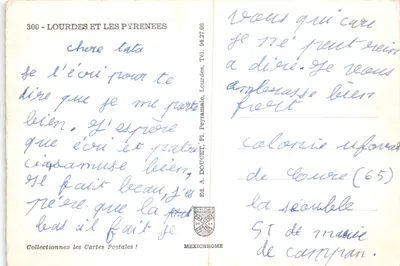 300 - LOURDES ET LES PYRENEES
Chere tata
Je l'écri pour te
dire que je me porte
bien. J'espère
que écri et patri
cia samuse bien,
Il fait beau, j'es
père que la
bas il fait je
Collectionnez les Cartes Postales !
Ed. A. DOUCET, Pl. Peyramale, Lourdes, Tél. 94.27.08
MEXICHROME
vous qui care
je ne peut rein
a dire. Je vous
ambrasse bien
fort
colonie
de (65)
la
St de marie
de campan.